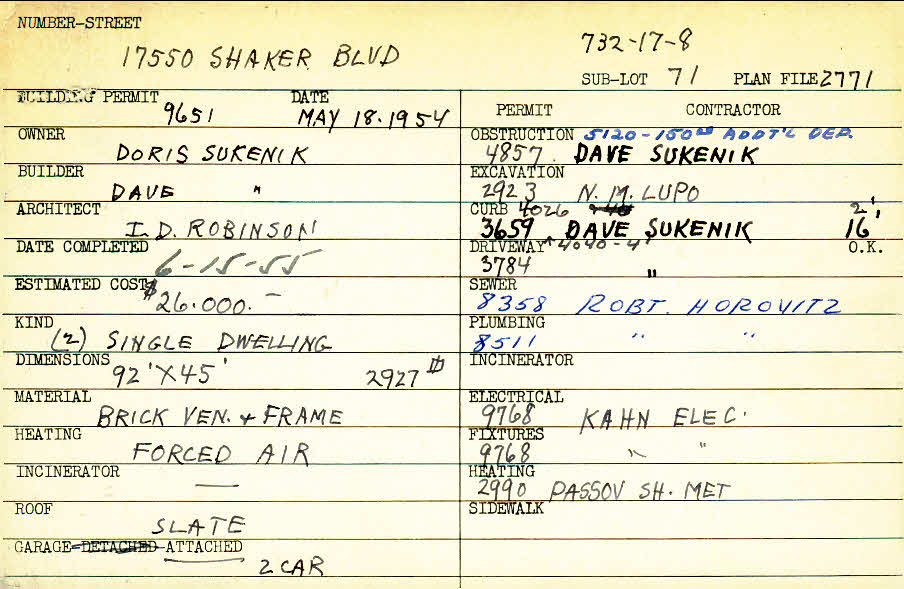 NUMBER-STREET
17550 SHAKER BLVD
732-17-8
SUB-LOT 71 PLAN FILE 2771
BUILDING PERMIT DATE
9651 MAY 18.1954
OWNER
DORIS SUKENIK
BUILDER
DAVE "
ARCHITECT
I.D. ROBINSON
DATE COMPLETED
6-15-55
ESTIMATED COST $
26.000.—
KIND
(2) SINGLE DWELLING
DIMENSIONS
92'X45' 2927
MATERIAL
BRICK VEN. + FRAME
HEATING
FORCED AIR
INCINERATOR
—
ROOF
SLATE
GARAGE-DETACHED-ATTACHED
2 CAR
PERMIT CONTRACTOR
OBSTRUCTION 5120-150.00 ADDT'L DEP.
4857. DAVE SUKENIK
EXCAVATION
2923 N.M. LUPO
CURB 4026 2'
3659 DAVE SUKENIK 16'
DRIVEWAY 4040-4' O.K.
3784 "
SEWER
8358 ROBT. HOROVITZ
PLUMBING
8511 " "
INCINERATOR
ELECTRICAL
9768 KAHN ELEC.
FIXTURES
9768 " "
HEATING
2990 PASSOV SH. MET
SIDEWALK